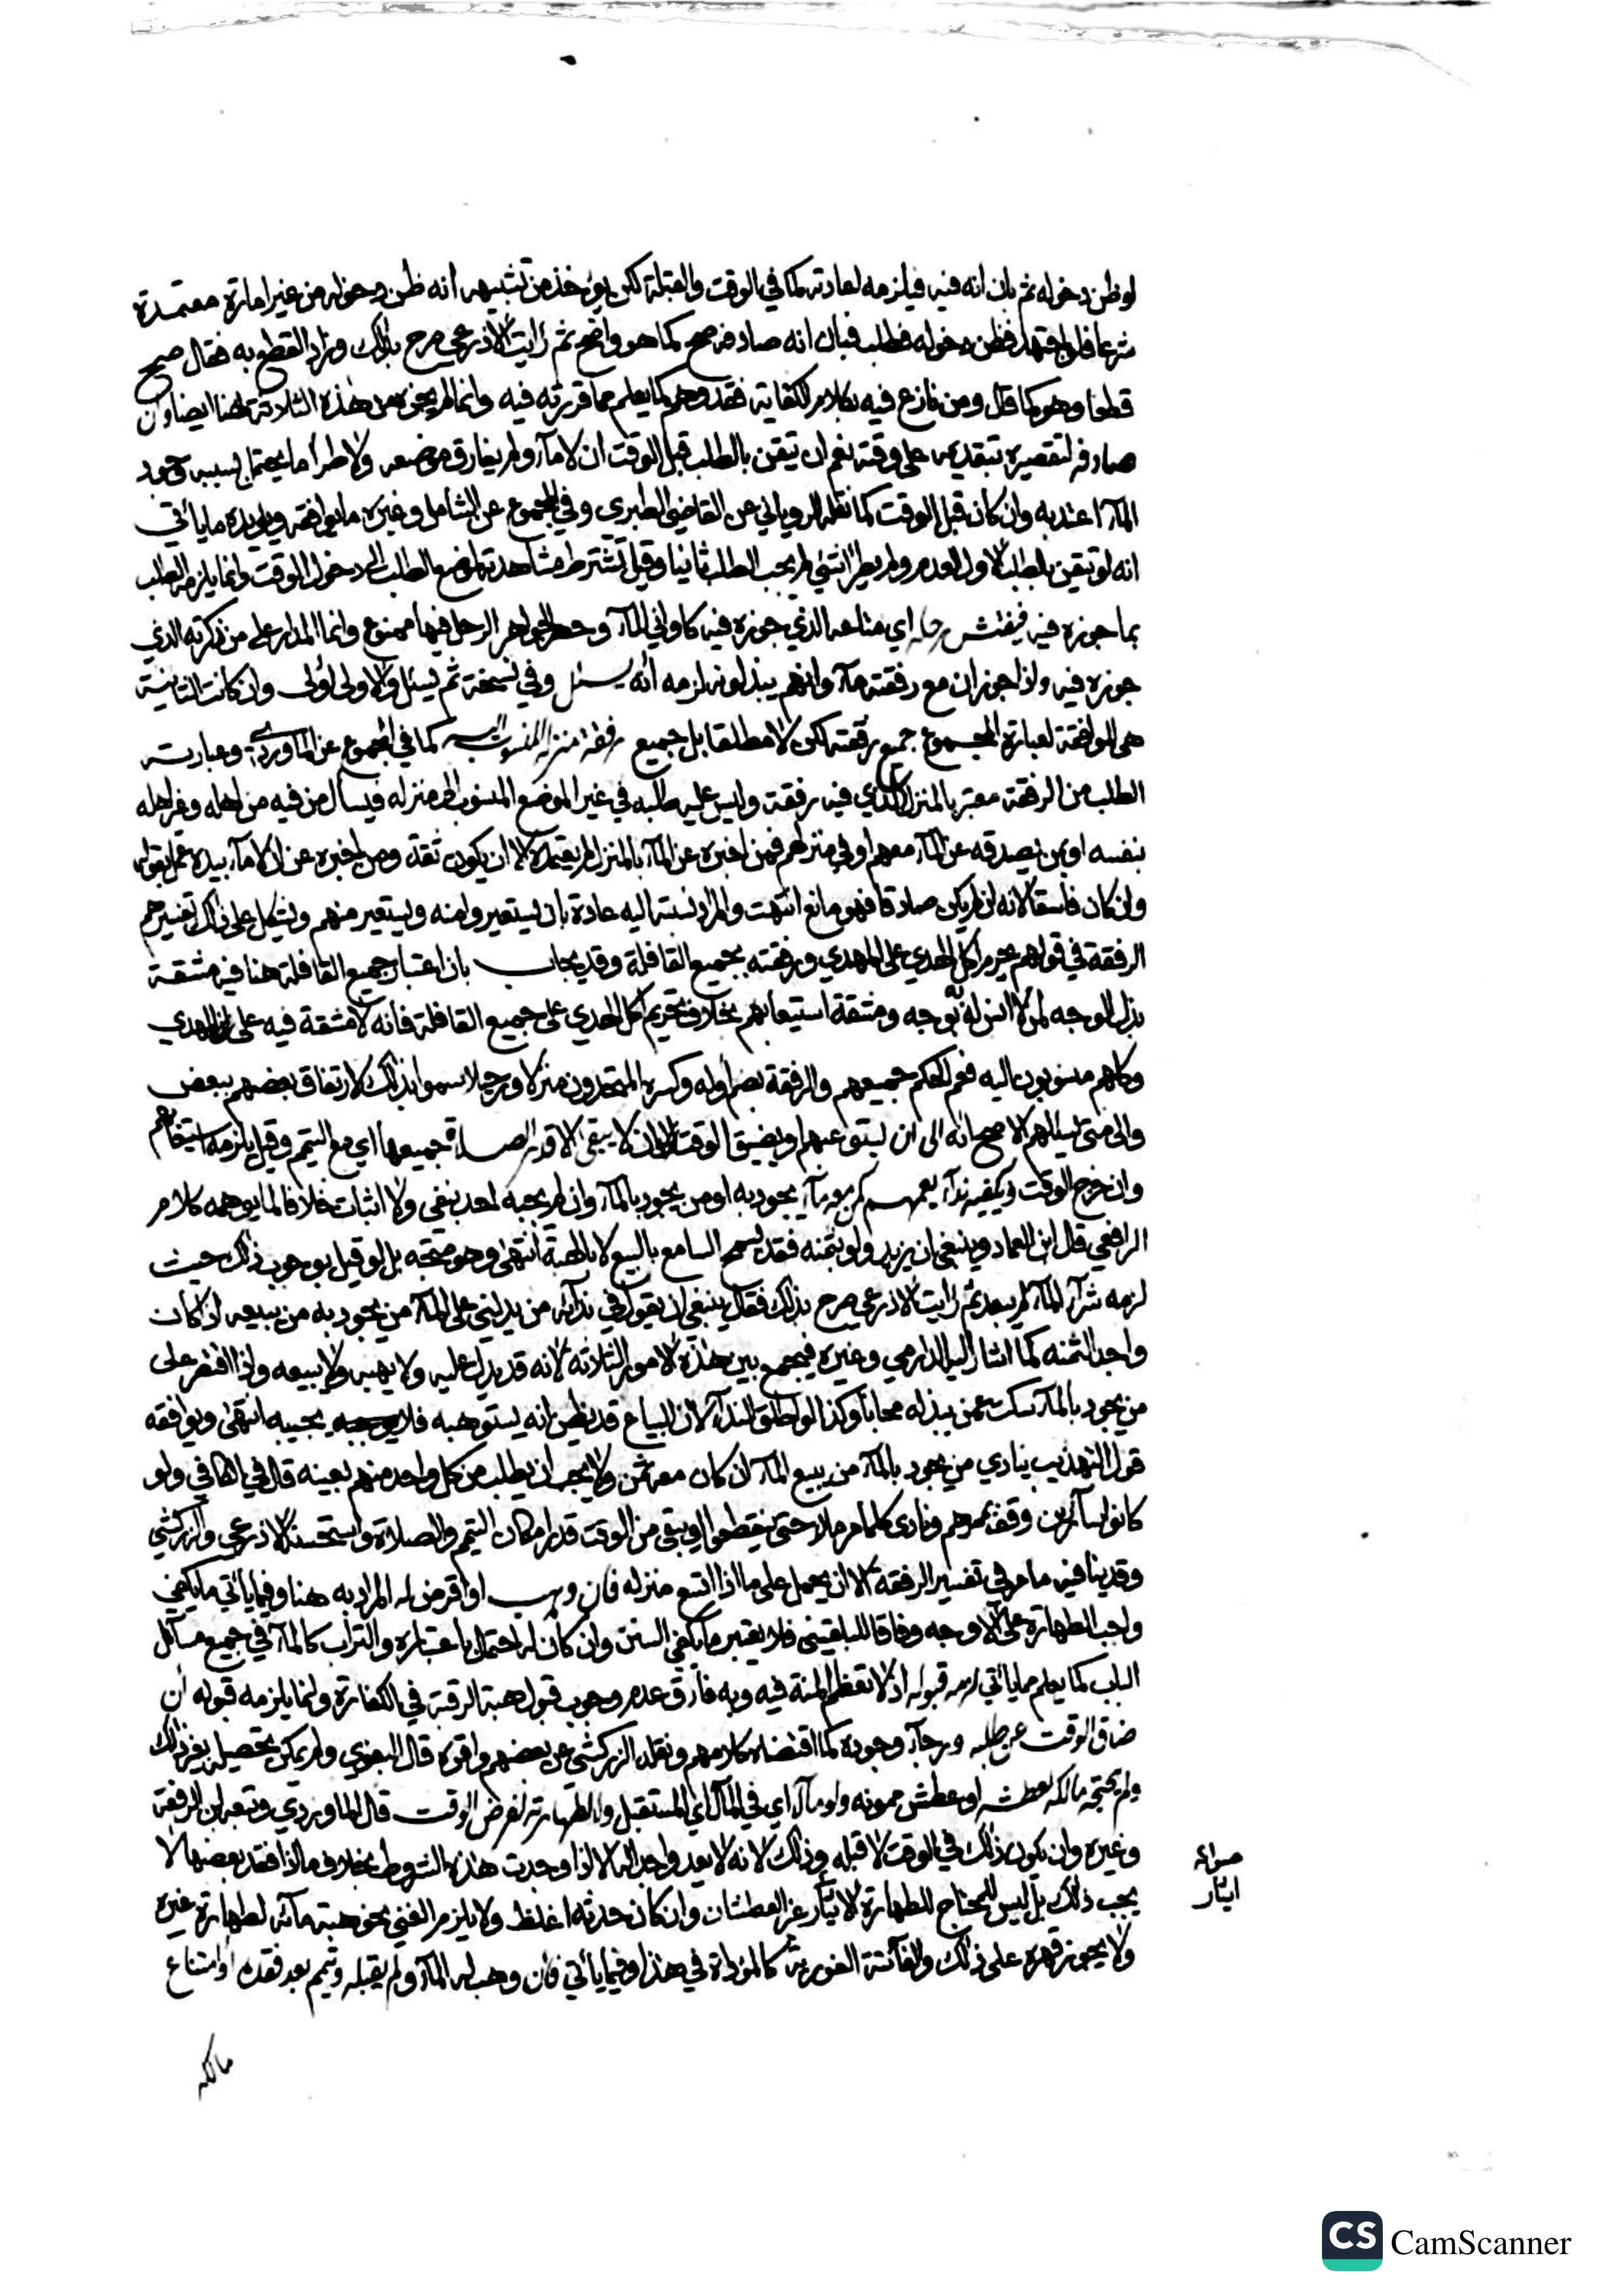 لو ظن دخوله ثم بان انه فيه فيلزمه لعادته كما في الوقت والقبلة لكن يؤخذ من تشبيهه انه ظن دخوله من غير امارة معتمدة
شرعا فلو اجتهد فظن دخوله فطلب فبان انه صادفه صح كما هو واضح ثم رايت الاذرعي صرح بذلك وزاد القطع به فقال صح
قطعا وهو كما قال ومن نازع فيه بكلام الكفاية فقد وهم كما يعلم مما قررته فيه وانما لم يجزه من هذه الثلاثة هنا ايضا وان
صادفه لتقصيره بتقديمه على وقته نعم ان تيقن بالطلب قبل الوقت ان لا مآء ولم يفارق موضعه ولا طرأ ما يحتمل بسببه وجود
المآء اعتد به وان كان قبل الوقت كما نقله الروياني عن القاضي الطبري وفي المجموع عن الشامل وغيره ما يوافقه ويؤيده ما ياتي
انه لو تيقن بالطلب الاول العدم ولم يطرأ شيء لم يجب الطلب ثانيا وقيل تشترط مشاهدته لموضع الطلب الى دخول الوقت وانما يلزمه الطلب
بما جوزه فيه فيفتش رحله اي متاعه الذي جوزه فيه كاواني المآء وحصر الجواهر الرحل فيها ممنوع وانما المدار على من ذكرته الذي
جوزه فيه واذا جوز ان مع رفقته مآء وانهم يبذلونه لزمه انه يسئل وفي نسخة ثم يسئل والاولى اولى وان كانت الثانية
هي الموافقة لعبارة المجموع جميع رفقته لكن لا مطلقا بل جميع رفقة منزله المنسوب اليه كما في المجموع عن الماوردي وعبارته
الطلب من الرفقة معتبر بالمنزل الذي فيه رفقة وليس عليه طلبه في غير الموضع المنسوب الى منزله فيسأل من فيه من اهله وغير اهله
بنفسه او بمن يصدقه عن المآء معهم او في منزلهم فمن اخبره عن المآء بالمنزل لم يعتمده الا ان يكون ثقة ومن اخبره عن ان لا مآء بيده عمل بقوله
وان كان فاسقا لانه ان لم يكن صادقا فهو مانع انتهت والمراد نسبته اليه عادة بان يستعيروا منه ويستعير منهم ويشكل على ذلك تفسيرهم
الرفقة في قولهم يحرم اكل الهدي على المهدي ورفقته بجميع القافلة وقد يجاب بان اعتبار جميع القافلة هنا فيه مشقة
بذل الوجه لمن لا انس له بوجه ومشقة استيعابهم بخلاف تحريم اكل الهدي على جميع القافلة فانه لا مشقة فيه على المهدي
وكلهم منسوبون اليه فعم الحكم جميعهم والرفقة بضم اوله وكسره المتحدون منزلا ورحلا سموا بذلك لارتفاق بعضهم ببعض
والى متى يسئلهم الاصح انه الى ان يستوعبهم او يضيق الوقت بان لا يبقى الا قدر الصلاة جميعها اي مع التيمم وقيل يلزمه استيعابهم
وان خرج الوقت ويكفيه ندآء يعمهم كمن معه مآء يجود به او من يجود بالمآء وان لم يجبه احد بنفي ولا اثبات خلافا لما يوهمه كلام
الرافعي قال ابن العماد وينبغي ان يزيد ولو بثمنه فقد يسمح السامع بالبيع لا بالهبة انتهى وهو متجه بل لو قيل بوجوب ذلك حيث
لزمه شرآء المآء لم يبعد ثم رايت الاذرعي صرح بذلك فقال ينبغي ان يقول في ندآئه من يدلني على المآء من يجود به من يبيعه اذ كان
واجدا لثمنه كما اشار اليه الدارمي وغيره فيجمع بين هذه الامور الثلاثة لانه قد يدل عليه ولا يهبه ولا يبيعه واذا اقتصر على
من يجود بالمآء سكت عمن يبذله مجانا وكذا لو اطلق الندآء لان البياع قد يظن انه يستوهبه فلا يجيبه انتهى ويوافقه
قول التهذيب ينادي من يجود بالمآء من يبيع المآء ان كان معه ثمن ولا يجب ان يطلب من كل واحد منهم بعينه قال في الكافي ولو
كانوا سآئرين وقف بممرهم ونادى كلما مر ملأ حتى ينقطعوا او يبقى من الوقت قدر امكان التيمم والصلاة واستحسنه الاذرعي والزركشي
وقد ينافيه ما مر في تفسير الرفقة الا ان يحمل على ما اذا اتسع منزله فان وهب او اقرض له المراد به هنا وفيما ياتي ما يكفي
واجب الطهارة على الاوجه وفاقا للبلقيني فلا يعتبر ما يكفي السنن وان كان له احتمال باعتباره والتراب كالمآء في جميع مسآئل
الباب كما يعلم مما ياتي لزمه قبوله اذ لا تعظم المنة فيه وبه فارق عدم وجوب قبول هبة الرقبة في الكفارة وانما يلزمه قبوله ان
ضاق الوقت عن طلبه ورجآء وجوده كما اقتضاه كلامهم ونقله الزركشي عن بعضهم واقره قال البغوي ولم يمكن تحصيله بغير ذلك
ولم يحتجه مالكه لعطشه او عطش ممونه ولو مآلا اي في المآل اي المستقبل ولا لطهارته لفرض الوقت قال الماوردي وتبعه ابن الرفعة
وغيره وان يكون ذلك في الوقت لا قبله وذلك لانه لا يعد واجدا الا اذا وجدت هذه الشروط بخلاف ما اذا فقد بعضها لا
يجب ذلك بل ليس للمحتاج للطهارة الايثآر غير العطشان وان كان حدثه اغلظ ولا يلزم الغني بنحو هبة مآئه لطهارة غيره
ولا يجوز قهره على ذلك والفآئتة الفورية كالمؤداة في هذا وفيما ياتي فان وهب له المآء ولم يقبله وتيمم بعد فقده او امتناع
صوابه
ايثار
مالكه
CS CamScanner